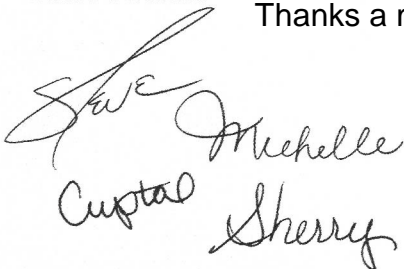 Thanks a
Steve
Michelle
Crystal
Sherry